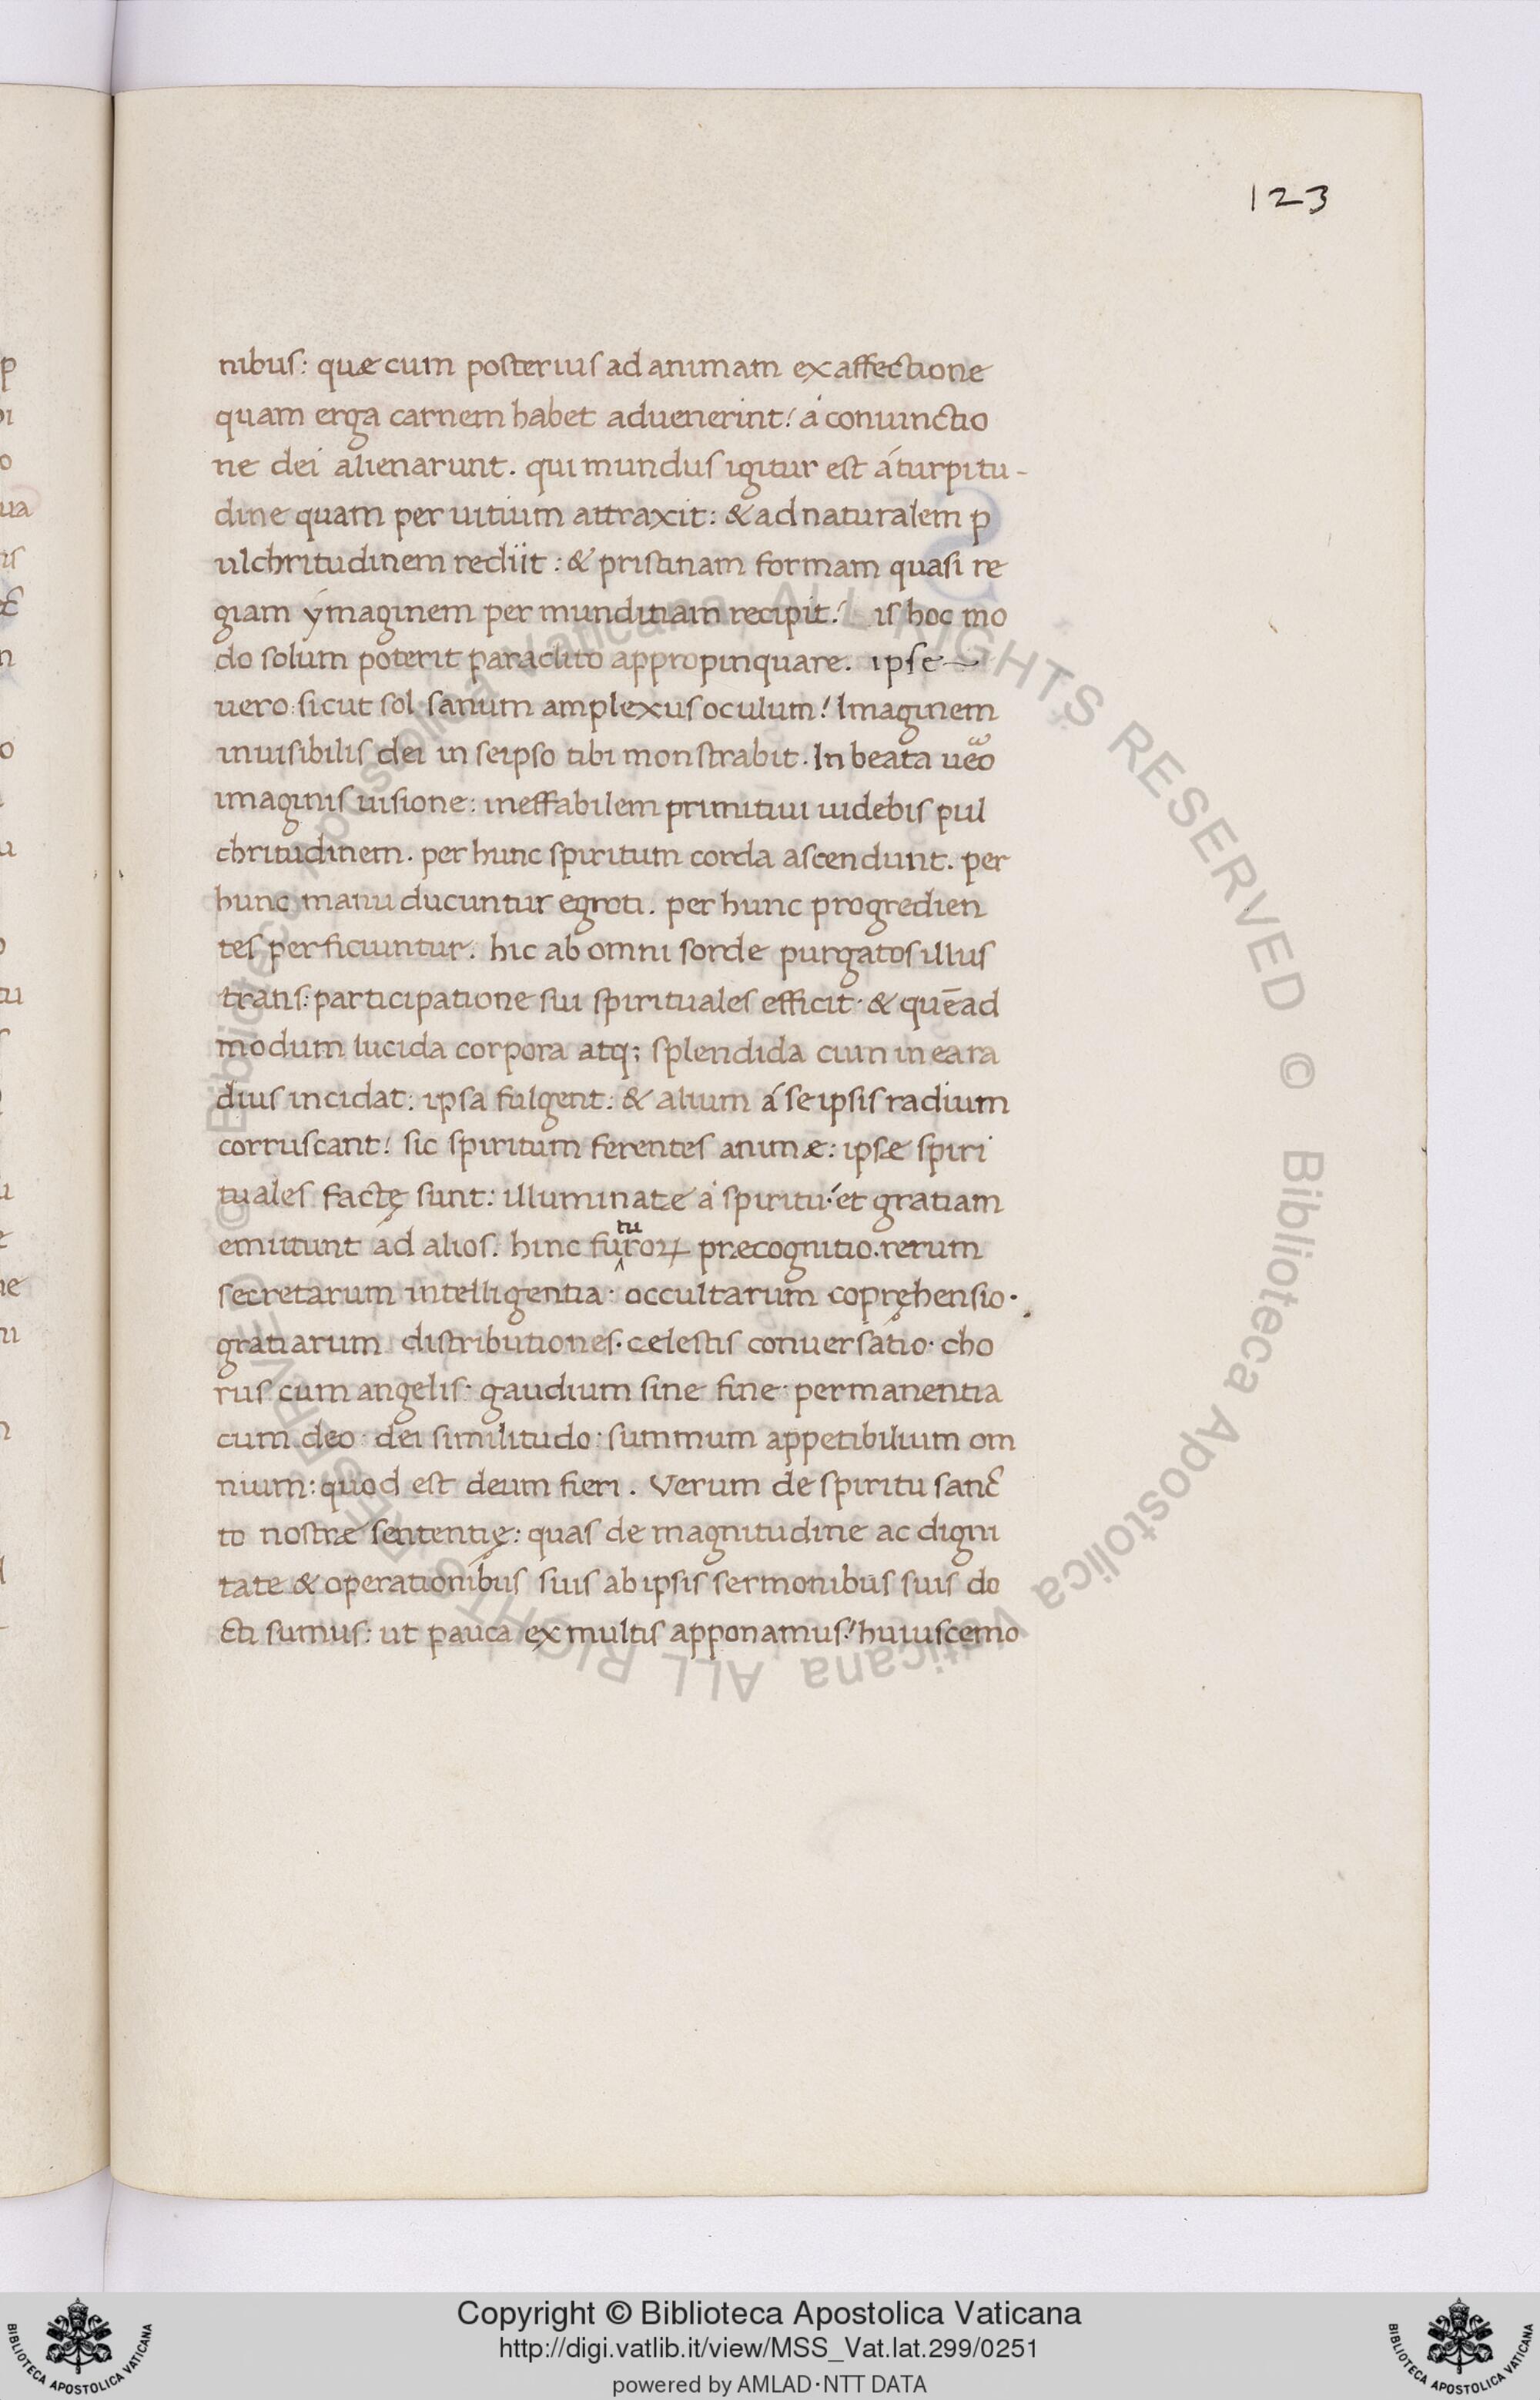 123
nibus: quæ cum posterius ad animam ex affectione
quam erga carnem habet aduenerint! á coniunctio
ne dei alienarunt. qui mundus igitur est á turpitu-
dine quam per uitium attraxit: & ad naturalem p
ulchritudinem rediit: & pristinam formam quasi re
giam ymaginem per munditiam recipit! is hoc mo
do solum poterit paraclito appropinquare. ipse
uero: sicut sol sanum amplexus oculum! Imaginem
inuisibilis dei in seipso tibi monstrabit. In beata ueo
imaginis uisione: ineffabilem primitiui uidebis pul
chritudinem. per hunc spiritum corda ascendunt. per
hunc manu ducuntur egroti. per hunc progredien
tes perficiuntur. hic ab omni sorde purgatos illus
trans: participatione sui spirituales efficit. & quēad
modum lucida corpora atq; splendida cum in ea ra
dius incidat: ipsa fulgent: & alium á se ipsis radium
corruscant! sic spiritum ferentes animæ: ipsæ spiri
tuales factę sunt: illuminatæ á spiritu. et gratiam
emittunt ád alios. hinc futuroꝝ præcognitio. rerum
secretarum intelligentia. occultarum copręhensio.
gratiarum distributiones. celestis conuersatio. cho
rus cum angelis. gaudium sine fine. permanentia
cum deo: dei similitudo: summum appetibilium om
nium: quod est deum fieri. Verum de spiritu sanc
to nostræ sententię: quas de magnitudine ac digni
tate & operationibus suis ab ipsis sermonibus suis do
cti sumus: ut pauca ex multis apponamus! huiuscemo
© Biblioteca Apostolica Vaticana ALL RIGHTS RESERVED © Biblioteca Apostolica Vaticana ALL RIGHTS RESERVED
Copyright © Biblioteca Apostolica Vaticana
http://digi.vatlib.it/view/MSS_Vat.lat.299/0251
powered by AMLAD·NTT DATA
BIBLIOTECA APOSTOLICA VATICANA
BIBLIOTECA APOSTOLICA VATICANA